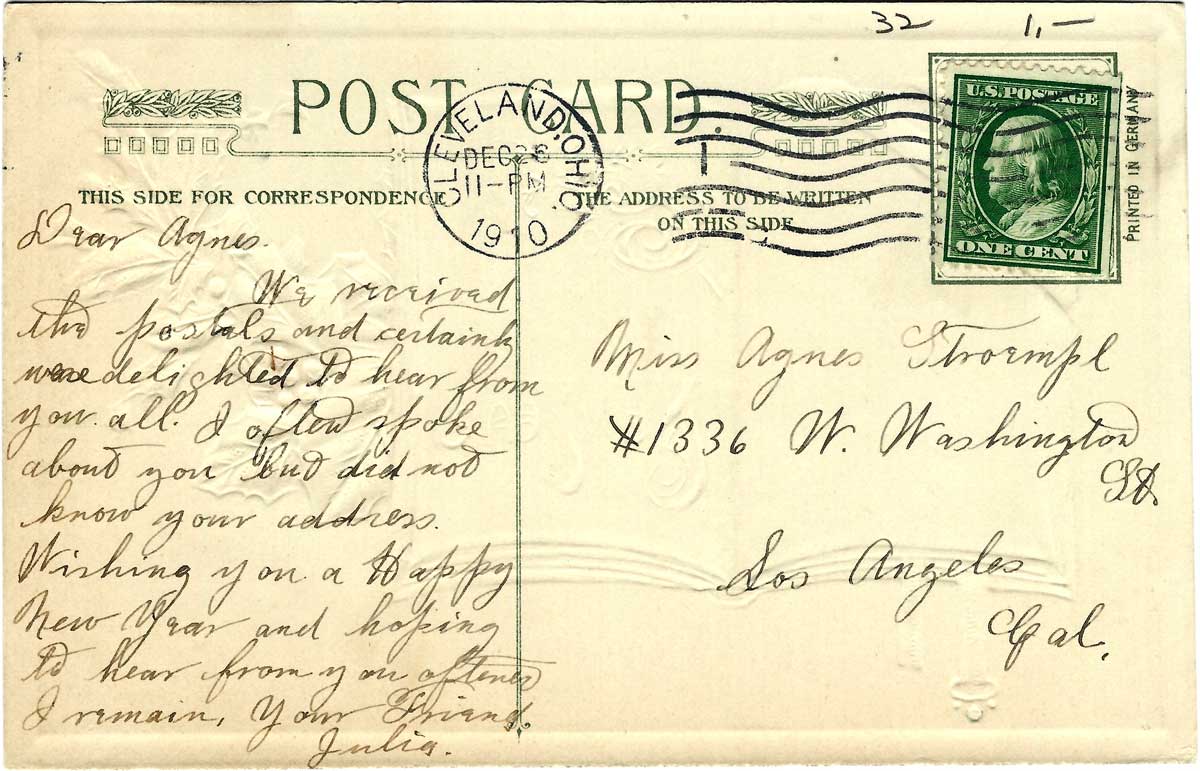 32 1,—
POST CARD.
CLEVELAND, OHIO.
DEC 26
11-PM
1910
U.S. POSTAGE
ONE CENT
PRINTED IN GERMANY
THIS SIDE FOR CORRESPONDENCE
THE ADDRESS TO BE WRITTEN
ON THIS SIDE
Dear Agnes.
We received
the postals and certainly
were delighted to hear from
you all. I often spoke
about you but did not
know your address.
Wishing you a Happy
New Year and hoping
to hear from you oftener
I remain, Your Friend.
Julia.
Miss Agnes Stroempl
#1336 W. Washington
St.
Los Angeles
Cal.